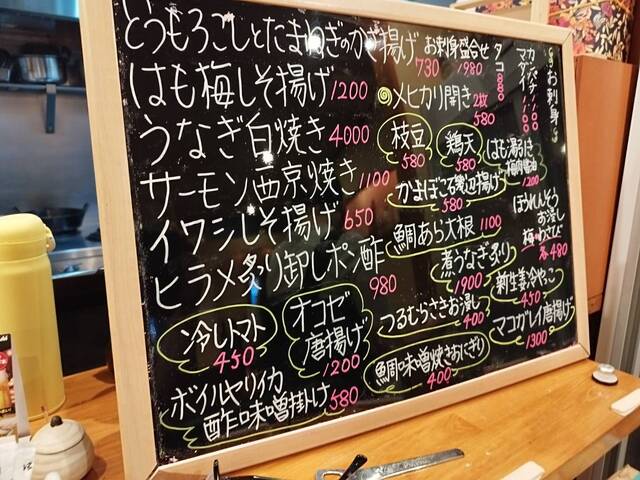 とうもろこしとたまねぎのかき揚げ 730
はも梅しそ揚げ 1200
うなぎ白焼き 4000
サーモン西京焼き 1100
イワシしそ揚げ 650
ヒラメ炙り卸しポン酢 980
冷しトマト
450
オコゼ
唐揚げ
1200
ボイルヤリイカ
酢味噌掛け 580
お刺身盛合せ
1980
メヒカリ開き 2枚
580
枝豆
580
鶏天
580
かまぼこ磯辺揚げ
580
鯛あら大根 1100
煮うなぎ炙り
1900
つるむらさきお浸し
400
鯛味噌焼きおにぎり
400
お刺身
カンパチ 1100
マダイ 1100
タコ 880
はも湯引き
梅肉醤油
1200
ほうれんそう
お浸し
梅・わさび
各480
新生姜冷やっこ
450
マコガレイ唐揚げ
1300